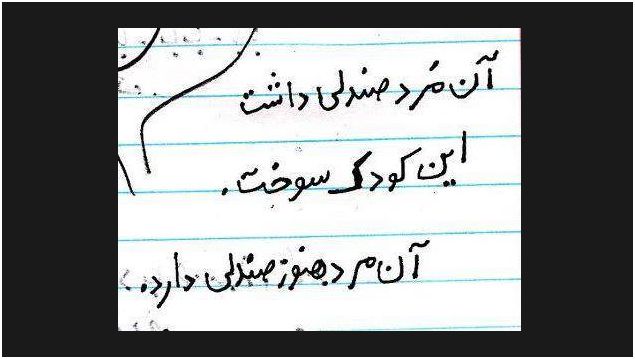 آن مَرد صندلی داشت
این کودک سوخت.
آن مرد هنوز صندلی دارد.